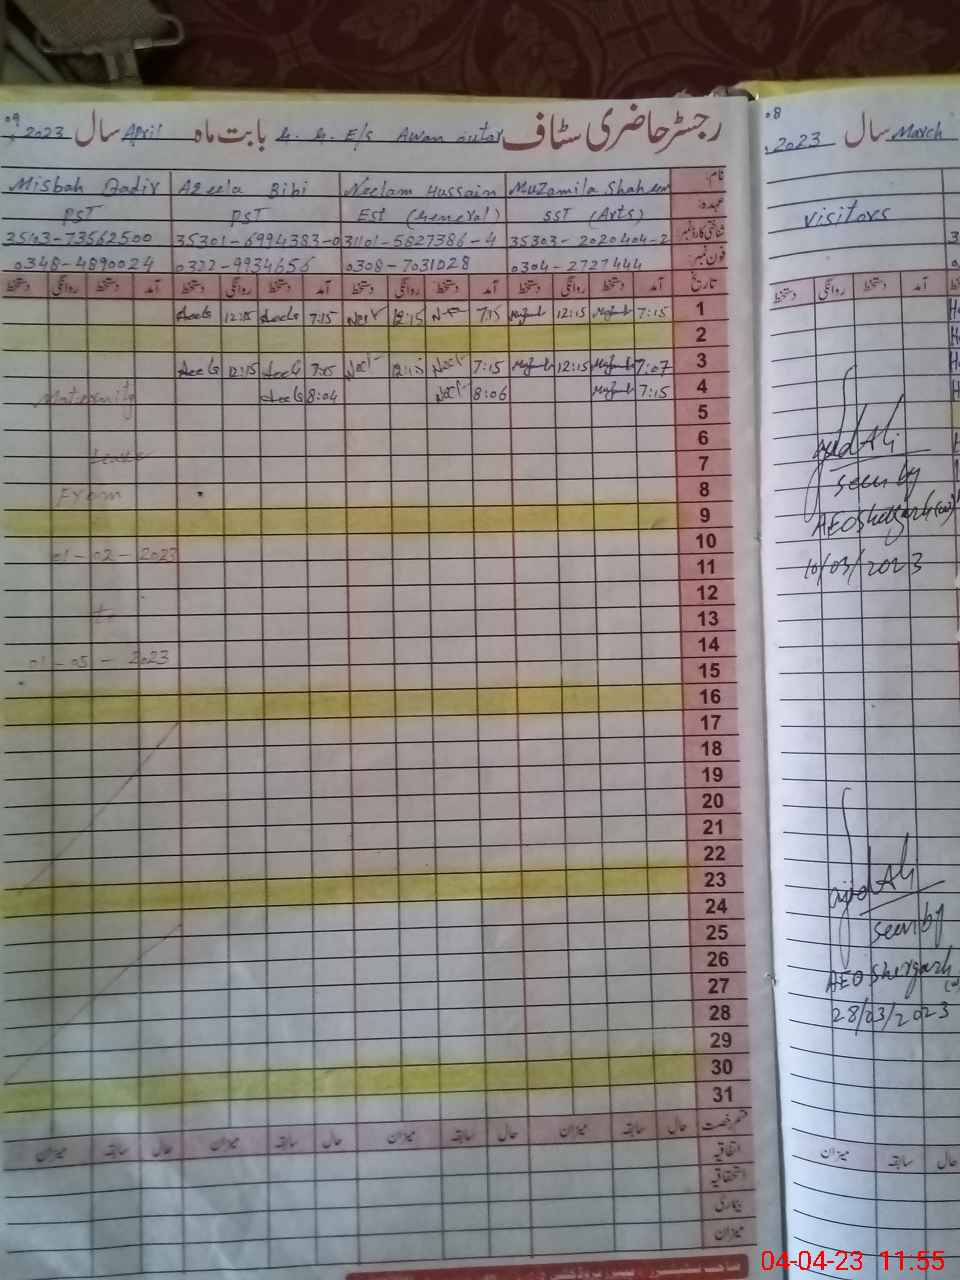 رجسٹر حاضری سٹاف G. G. E/S Awan outar بابت ماہ April سال 2023 09
نام:
Muzamila Shaheen
Neelam Hussain
Azeela Bibi
Misbah Qadir
عہدہ:
SST (Arts)
Est (General)
PST
PST
شناختی کارڈ نمبر:
35303-2020404-2
31101-5827386-4
35301-6994383-0
35103-73562500
فون نمبر:
0304-2727444
0308-7031028
0322-9934656
0348-4890024
تاریخ آمد دستخط روانگی دستخط آمد دستخط روانگی دستخط آمد دستخط روانگی دستخط آمد دستخط روانگی دستخط
1 7:15 12:15 7:15 12:15 7:15 12:15
2
3 7:07 12:15 7:15 7:15 12:15
4 7:15 8:06 8:04
Maternity
5
6
7
Leave
8
From
9
10
01-02-2023
11
12
13
to
14
01-05-2023
15
16
17
18
19
20
21
22
23
24
25
26
27
28
29
30
31
قسم رخصت حال سابقہ میزان حال سابقہ میزان حال سابقہ میزان حال سابقہ میزان
اتفاقیہ
استحقاقیہ
بیماری
میزان
08
March سال 2023
visitors
آمد دستخط روانگی دستخط
seen by
AEO Shergarh
10/03/2023
seen by
AEO Shergarh
28/03/2023
حال سابقہ میزان
04-04-23 11.55